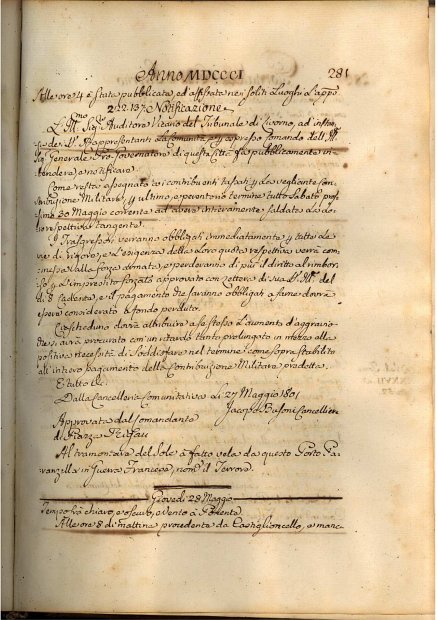 Anno MDCCCI 281
Alle ore 4 è stata pubblicata, ed affissata nei soliti Luoghi l'app.e
222.137. Notificazione
L'Ill.mo Sig.r Auditore Vicario del Tribunale di Livorno, ad insta-
Rappresentanti la Comunità, e p. espresso comando dell'Ill.mo
Sig. Generale Pro Governatore di questa Città fa pubblicamente in-
tendere, e notificare.
Come resta assegnato ai contribuenti tassati p. la vegliante Con-
tribuzione Militare, p. ultimo, e perentorio termine tutto Sabato pros-
simo 30 Maggio corrente ad avere interamente saldate le lo-
ro respettive tangenti.
I Trasgressori verranno obbligati immediatamente p. tutte le
vie di rigore, e l'esigenza della loro quota respettiva verrà com-
messa alla forza armata, e perderanno di più il diritto al rimbor-
so p. l'imprestito forzato approvato con lettera di Sua Ill.ma del
dì 8 cadente, e il pagamento che saranno obbligati a fare dovrà
essere considerato a fondo perduto.
Cascheduno dovrà attribuire a se stesso l'aumento d'aggravio
che si avrà procurato con un ritardo tanto prolungato in mezzo alla
positiva necessità di Soddisfare nel termine come sopra stabilito
all'intero pagamento della Contribuzione Militare predetta.
E tutto &c.
Dalla Cancelleria Comunitativa Li 27 Maggio 1801
Jacopo Busoni Cancelliere
Approvata dal Comandante
di Piazza
Al tramontare del Sole à fatto vela da questo Porto Pa-
ranzella in Guerra Francese, nom.a il Terrore.
Giovedì 28 Maggio
Tempo frà chiaro, e oscuro, e vento à Ponente
Alle ore 8 di mattina procedenti da Castiglioncello, e manc-